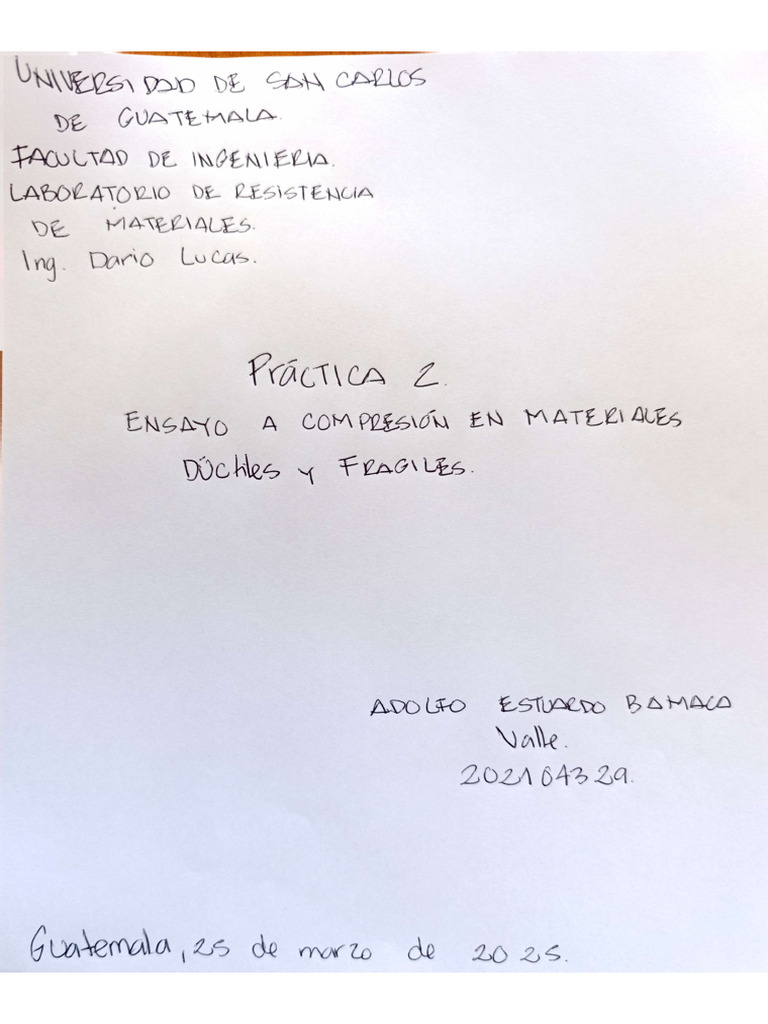 UNIVERSIDAD DE SAN CARLOS
DE GUATEMALA.
FACULTAD DE INGENIERIA.
LABORATORIO DE RESISTENCIA
DE MATERIALES.
Ing. Dario Lucas.
PráCTICA 2.
ENSAYO A COMPRESIÓN EN MATERIALES
DÚctiles y FRAGILES.
ADOLFO ESTUARDO BAMACA
Valle.
202104329.
Guatemala, 25 de marzo de 2025.